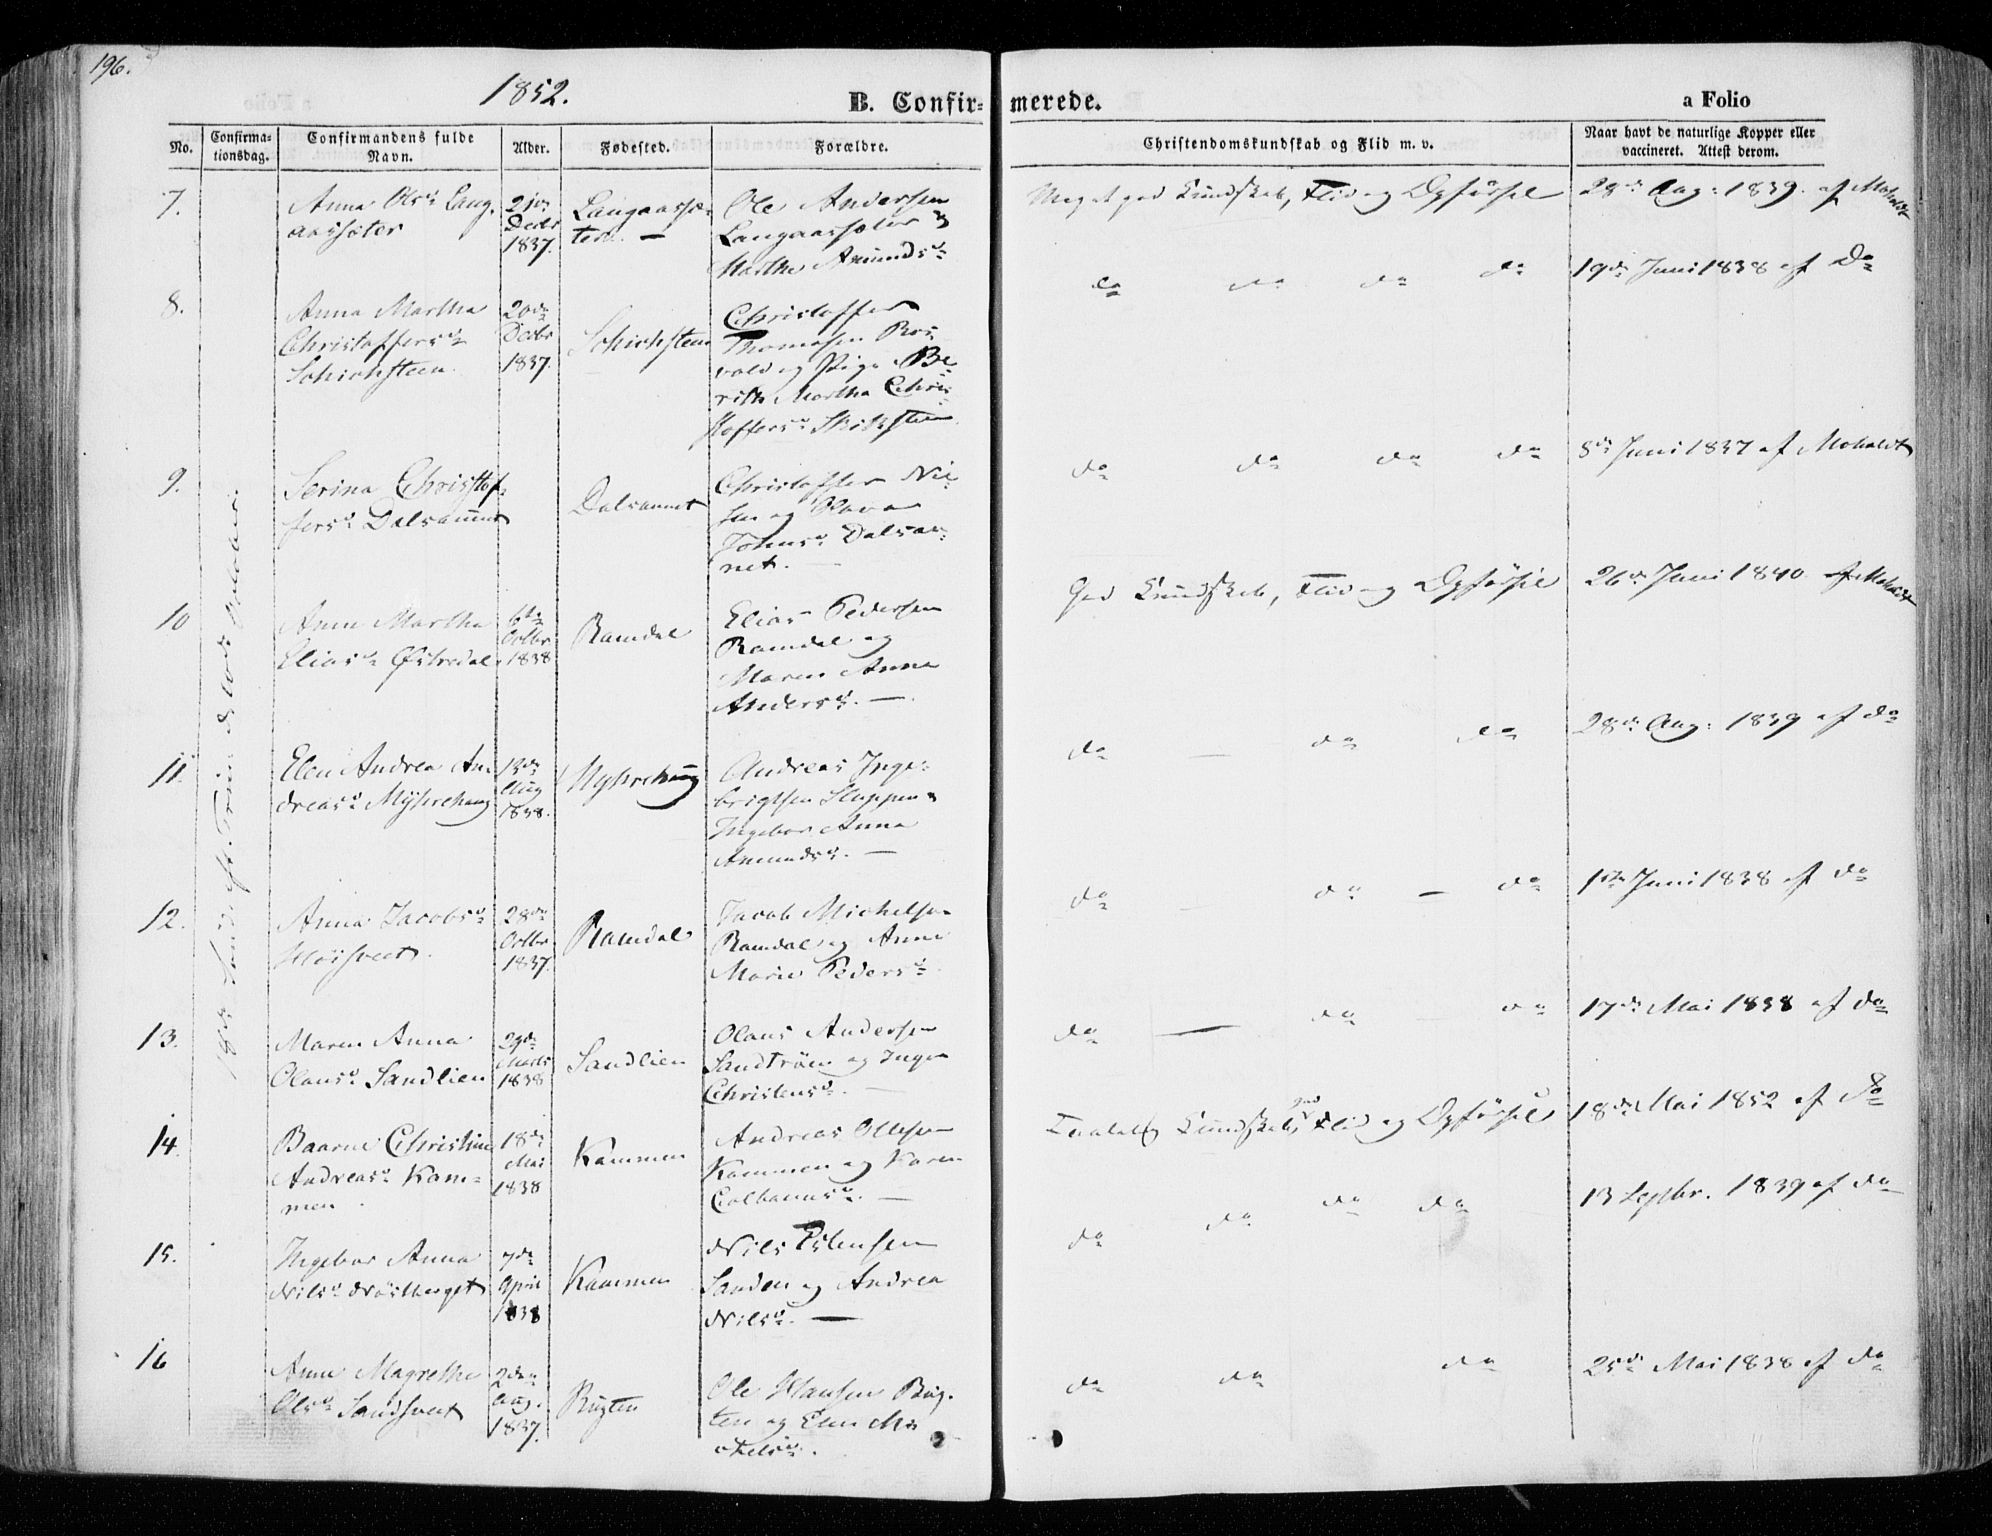 196.
1852.
B. Confir-
merede.
a Folio
No.
Confirma-
tionsdag.
Confirmandens fulde
Navn.
Alder.
Fødested.
Forældre.
Christendomskundskab og Flid m. v.
Naar havt de naturlige Kopper eller
vaccineret. Attest derom.
7.
Anna Olsd. Lang-
aassæter
Decbr
1837.
Langaassæ-
ter. —
Ole Andersen
Langaassæter &
Marthe Amundsd.
Meget god Kundskab, Flid og Opførsel
28de Aug: 1839. af Moholdt
8.
Anna Martha
Christoffersd.
Schichsteen
20de
Decbr
1837.
Schichsteen
Christoffer
Thomasen Ros-
vold og Pige Be-
rith Martha Chris-
toffersd. Skiksteen
do do do do
19de Juni 1838 af do
9.
Serina Christof-
fersd. Dalsaunet
Dalsaunet
Christoffer Nil-
sen og
Johnsd. Dalsau-
net. —
do do do do
8de Juni 1837 af Moholdt
10
Anne Martha
Eliasd. Østredal
6te
Octbr
1838
Ramdal
Elias Pedersen
Ramdal og
Maren Anna
Andersd. —
God Kundskab, Flid og Opførsel
26de Juni 1840. af Moholdt
11.
Elen Andrea An-
dreasd. Mÿsrehaug
13de
Aug
1838.
Mysrehaug
Andreas Inge-
brigtsen Sluppen &
Ingebor Anna
Amundsd. —
do — do do
28de Aug: 1839 af do
12.
Anna Jacobsd.
Høiseet.
28de
Octbr
1837.
Ramdal
Jacob Michelsen
Ramdal og Anne
Marie Pedersd.
do do — do
1ste Juni 1838 af do
13.
Maren Anna
Olausd. Sandlien
29de
Marts
1838
Sandlien
Olaus Andersen
Sandtrøen og Inger
Christensd. —
do — do do
17de Mai 1838 af do
14.
Baarne Christine
Andreasd. Kam-
men
18de
Mai
1838
Kammen
Andreas Ollesen
Kammen og Karen
Colbanusd. —
Taalelig Kundskab, god Flid og Opførsel
18de Mai 1852 af do
15.
Ingebor Anna
Nilsd.
7de
April
1838
Kammen
Nils Estensen
Sanden og Andrea
Nilsd. —
do do do do
13 Septbr. 1839 af do
16
Anne Magrethe
Olsd. Sandseet
2den
Aug.
1837.
Rugten
Ole Hansen Rug-
ten og Elen Mi-
chelsd.
do do do
25de Mai 1838 af do